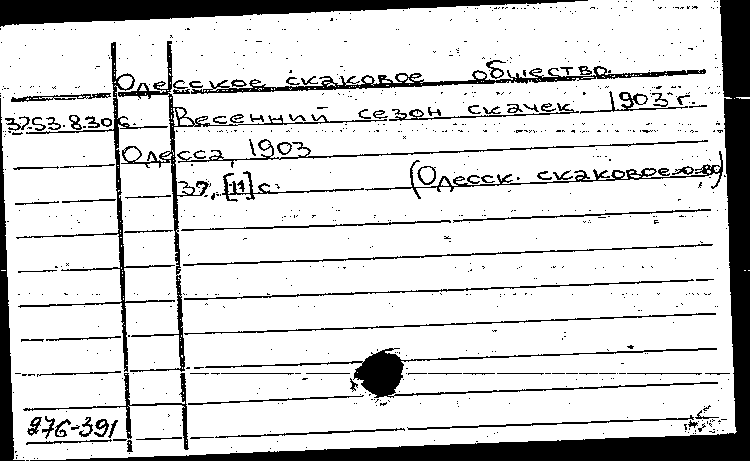 Одесское скаковое общество
3253.830с. Весенний сезон скачек 1903 г.
Одесса, 1903
39, [11] с. (Одесск. скаковое о-во)
276-391